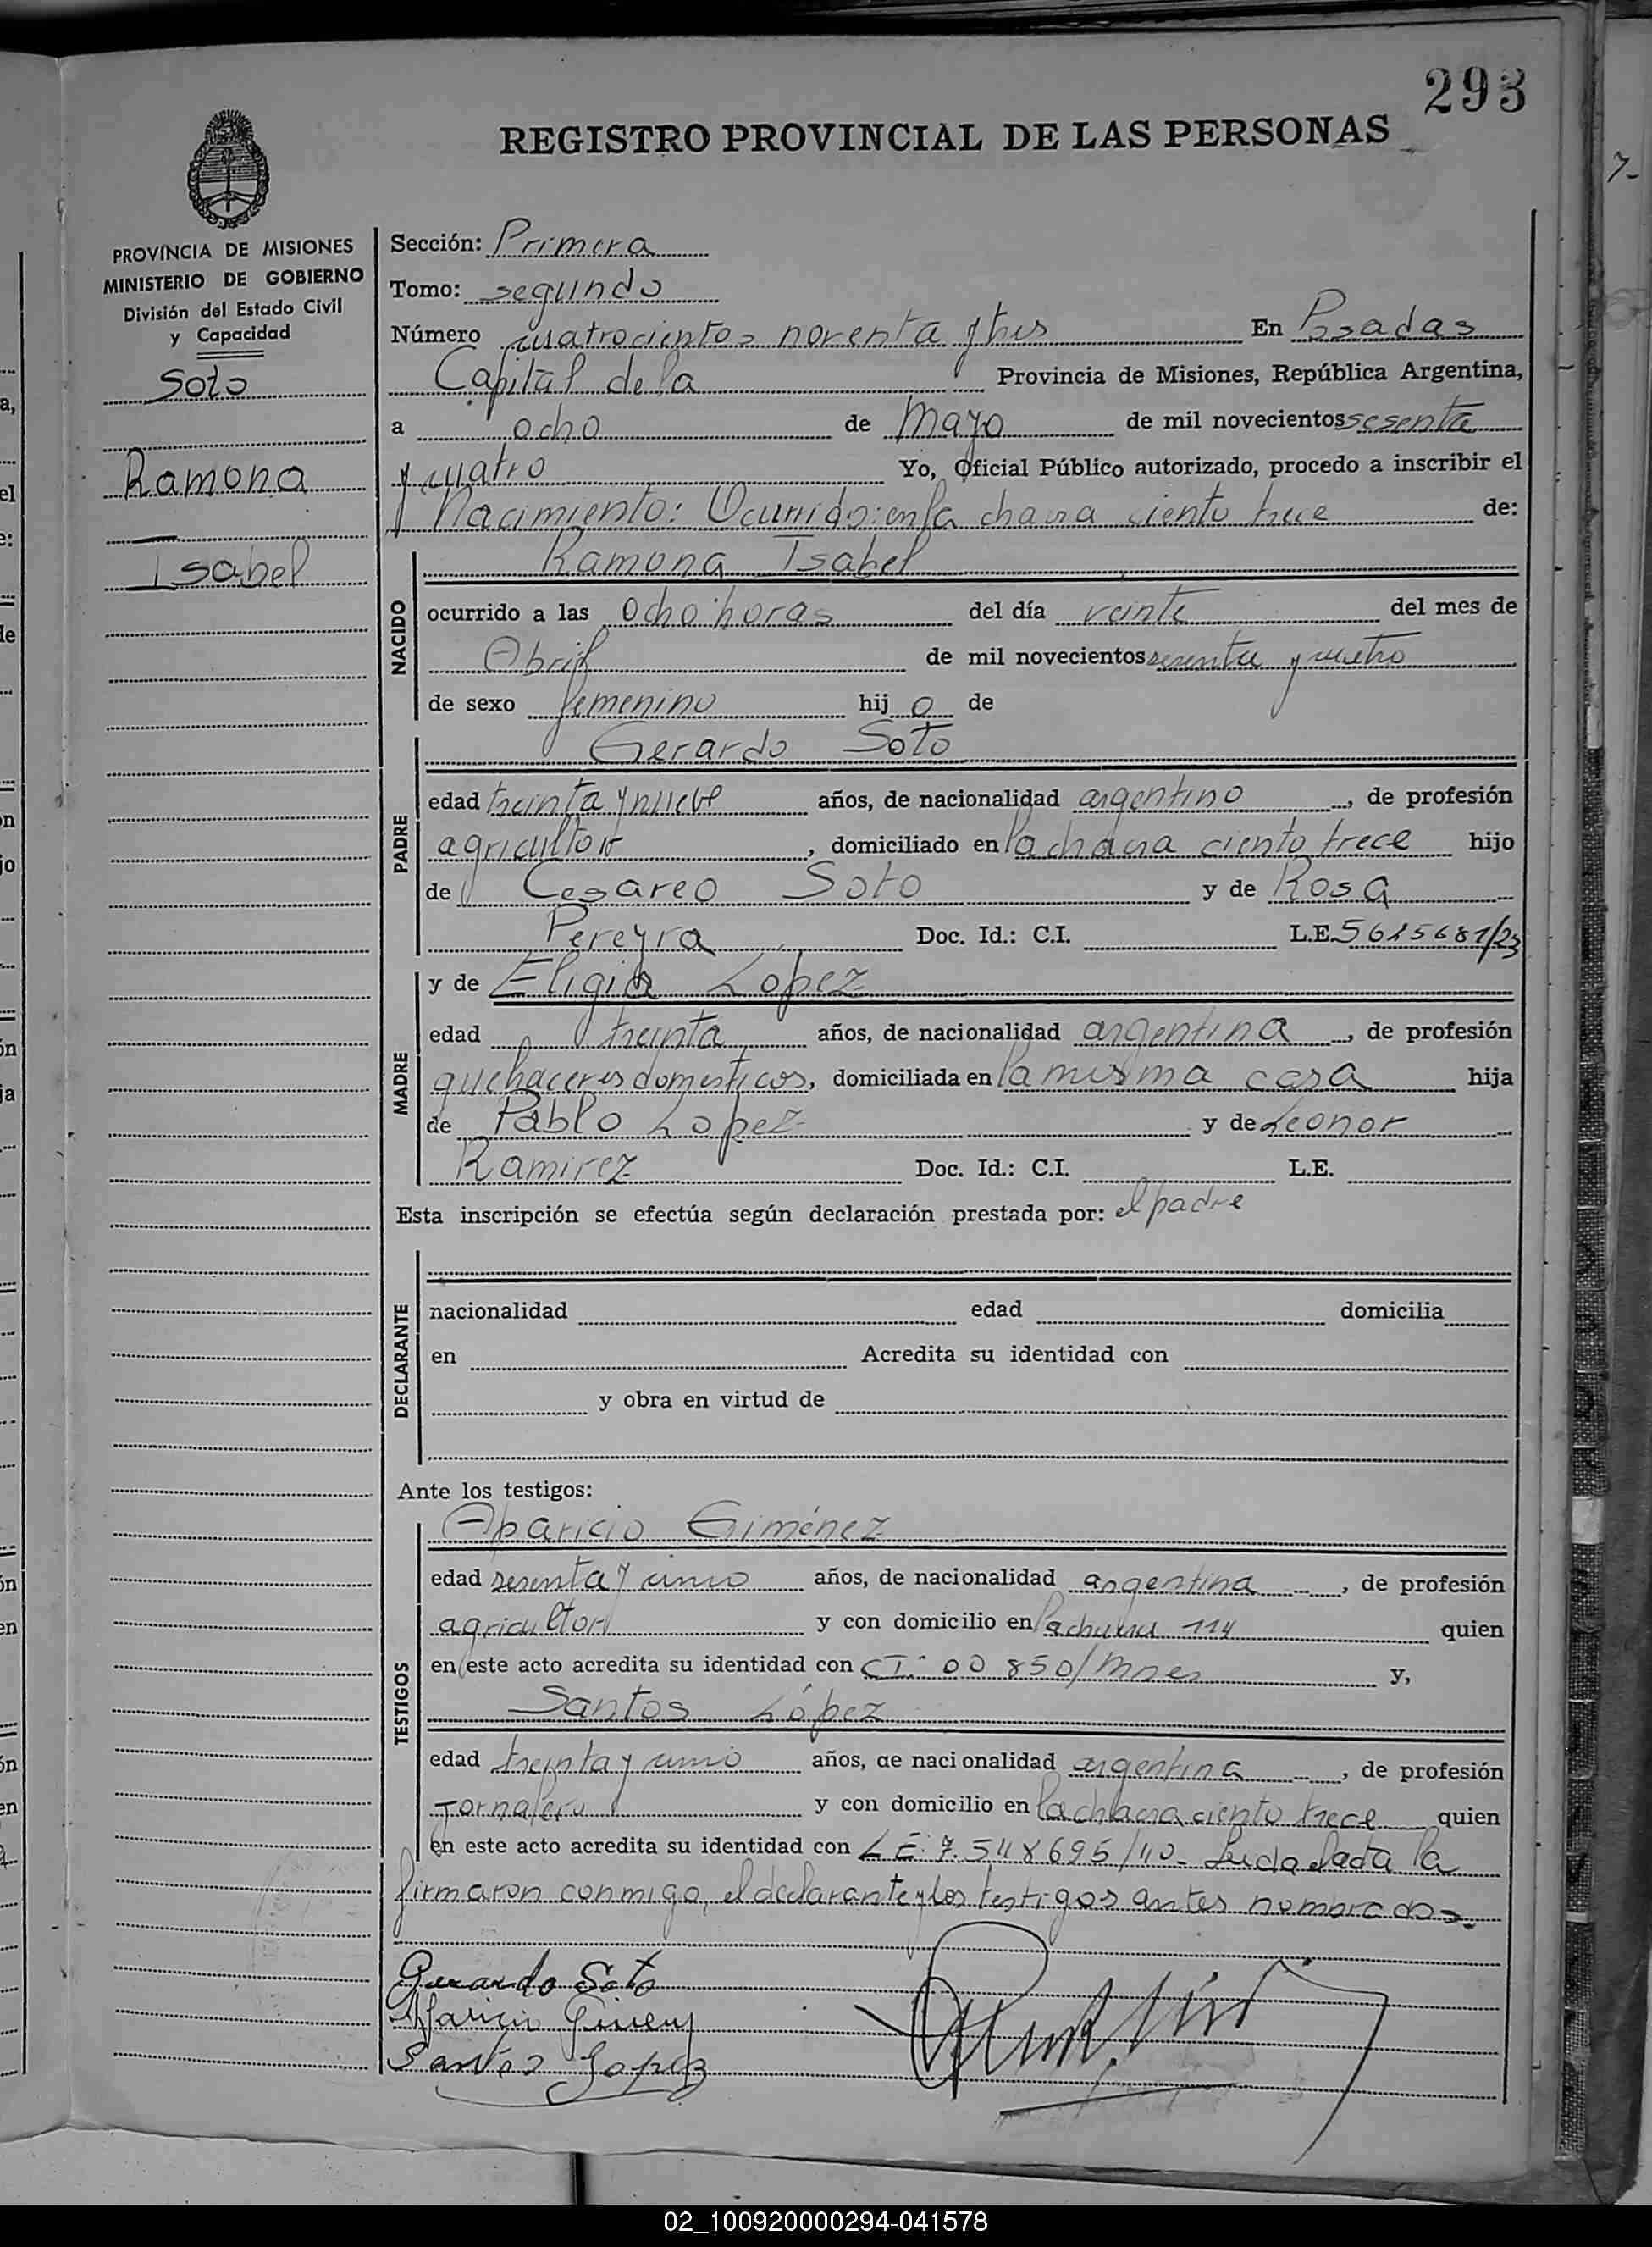 293
REGISTRO PROVINCIAL DE LAS PERSONAS
PROVINCIA DE MISIONES
MINISTERIO DE GOBIERNO
División del Estado Civil
y Capacidad
Soto
Ramona
Isabel
Sección: Primera
Tomo: segundo
Número cuatrocientos noventa y tres En Posadas
Capital de la Provincia de Misiones, República Argentina,
a ocho de Mayo de mil novecientos sesenta
y cuatro Yo, Oficial Público autorizado, procedo a inscribir el
Nacimiento: Ocurrido: en la chacra ciento trece de:
NACIDO
Ramona Isabel
ocurrido a las ocho horas del día veinte del mes de
Abril de mil novecientos sesenta y cuatro
de sexo femenino hij a de
PADRE
Gerardo Soto
edad treinta y nueve años, de nacionalidad argentino, de profesión
agricultor, domiciliado en la chacra ciento trece hijo
de Cesareo Soto y de Rosa
Pereyra Doc. Id.: C.I. L.E.
MADRE
y de Eligia Lopez
edad treinta años, de nacionalidad argentina, de profesión
quehaceres domesticos, domiciliada en la misma casa hija
de Pablo Lopez y de Leonor
Ramirez Doc. Id.: C.I. L.E.
Esta inscripción se efectúa según declaración prestada por: el padre
DECLARANTE
nacionalidad edad domicilia
en Acredita su identidad con
y obra en virtud de
Ante los testigos:
TESTIGOS
Aparicio Giménez
edad sesenta y cinco años, de nacionalidad argentina, de profesión
agricultor y con domicilio en la chacra 114 quien
en este acto acredita su identidad con CI: 00 850/Mnes y,
Santos López
edad treinta y años, de nacionalidad argentina, de profesión
Jornalero y con domicilio en la chacra ciento trece quien
en este acto acredita su identidad con LE: 7.548695/40- Leida el acta la
firmaron conmigo, el declarante y los testigos antes nombrados.
Gerardo Soto
Aparicio
Santos Lopez
02_100920000294-041578